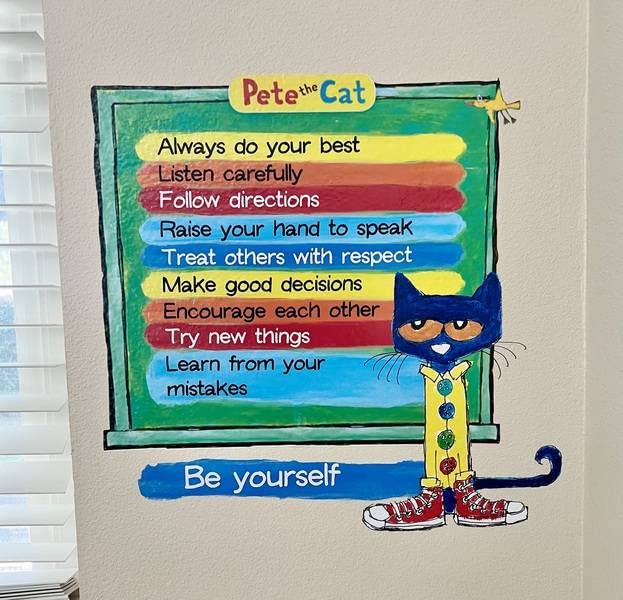 Pete the Cat
Always do your best
Listen carefully
Follow directions
Raise your hand to speak
Treat others with respect
Make good decisions
Encourage each other
Try new things
Learn from your
mistakes
Be yourself